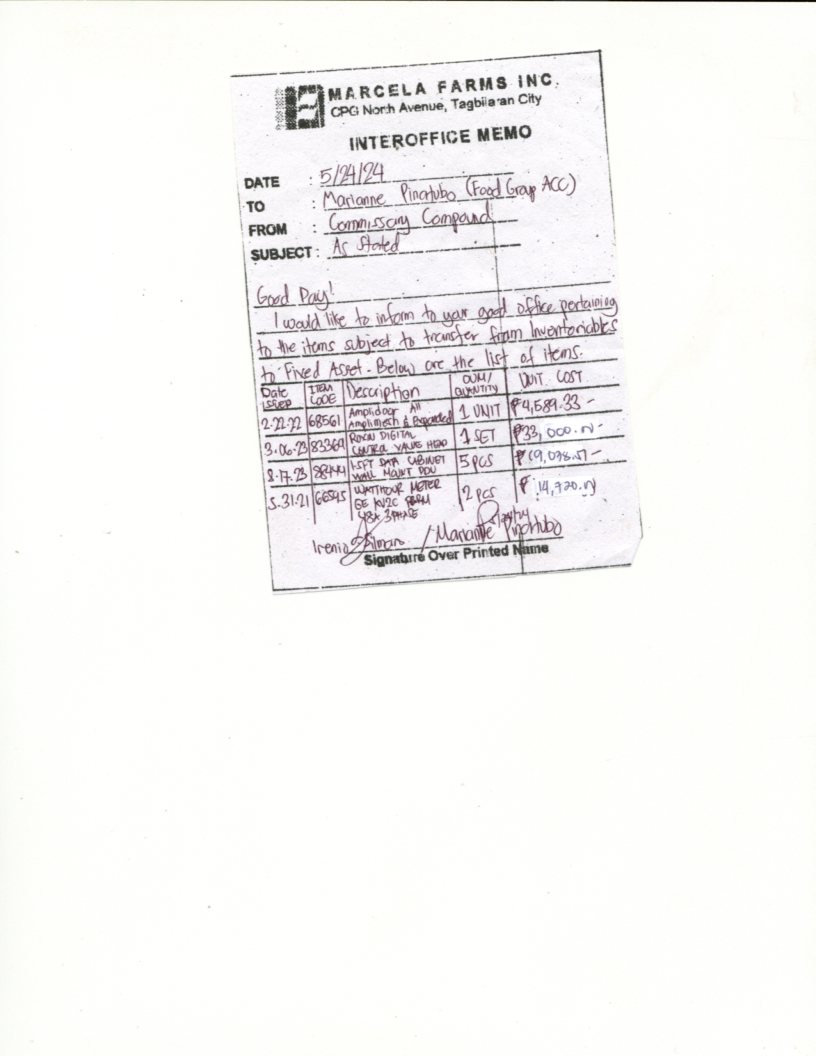 MARCELA FARMS INC.
CPG North Avenue, Tagbilaran City
INTEROFFICE MEMO
DATE : 5/24/24
TO : Marianne Pinatubo (Food Group ACC)
FROM : Commissary Compound
SUBJECT : As Stated
Good Day!
I would like to inform to your good office pertaining
to the items subject to transfer from Inventoriables
to Fixed Asset. Below are the list of items.
Date ISSUED ITEM CODE Description OUM/ QUANTITY UNIT COST
2.22.22 68561 Amplidoor All Amplimesh & Expanded 1 UNIT ₱4,589.33-
3.06.23 83369 DIGITAL CONTROL VALVE HEAD 1 SET ₱33,000.
8.17.23 88444 1.5FT DATA CABINET WALL MOUNT PDU 5 pcs
5.31.21 66595 WATTHOUR METER GE KV2C 3 PHASE 2 pcs ₱14,720.
Irenio / Marianne Pinatubo
Signature Over Printed Name